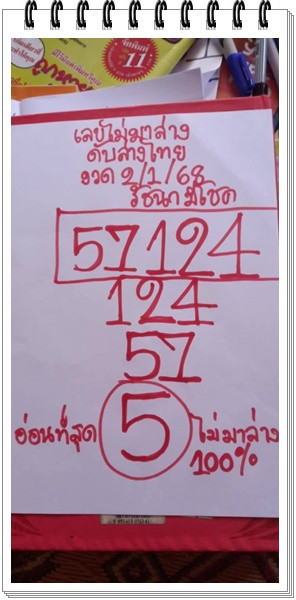 เลขไม่มาล่าง
ดับล่างไทย
งวด 2/1/68
รัชนก มีโชค
57124
124
57
5
อ่อนที่สุด
ไม่มาล่าง
100%
11